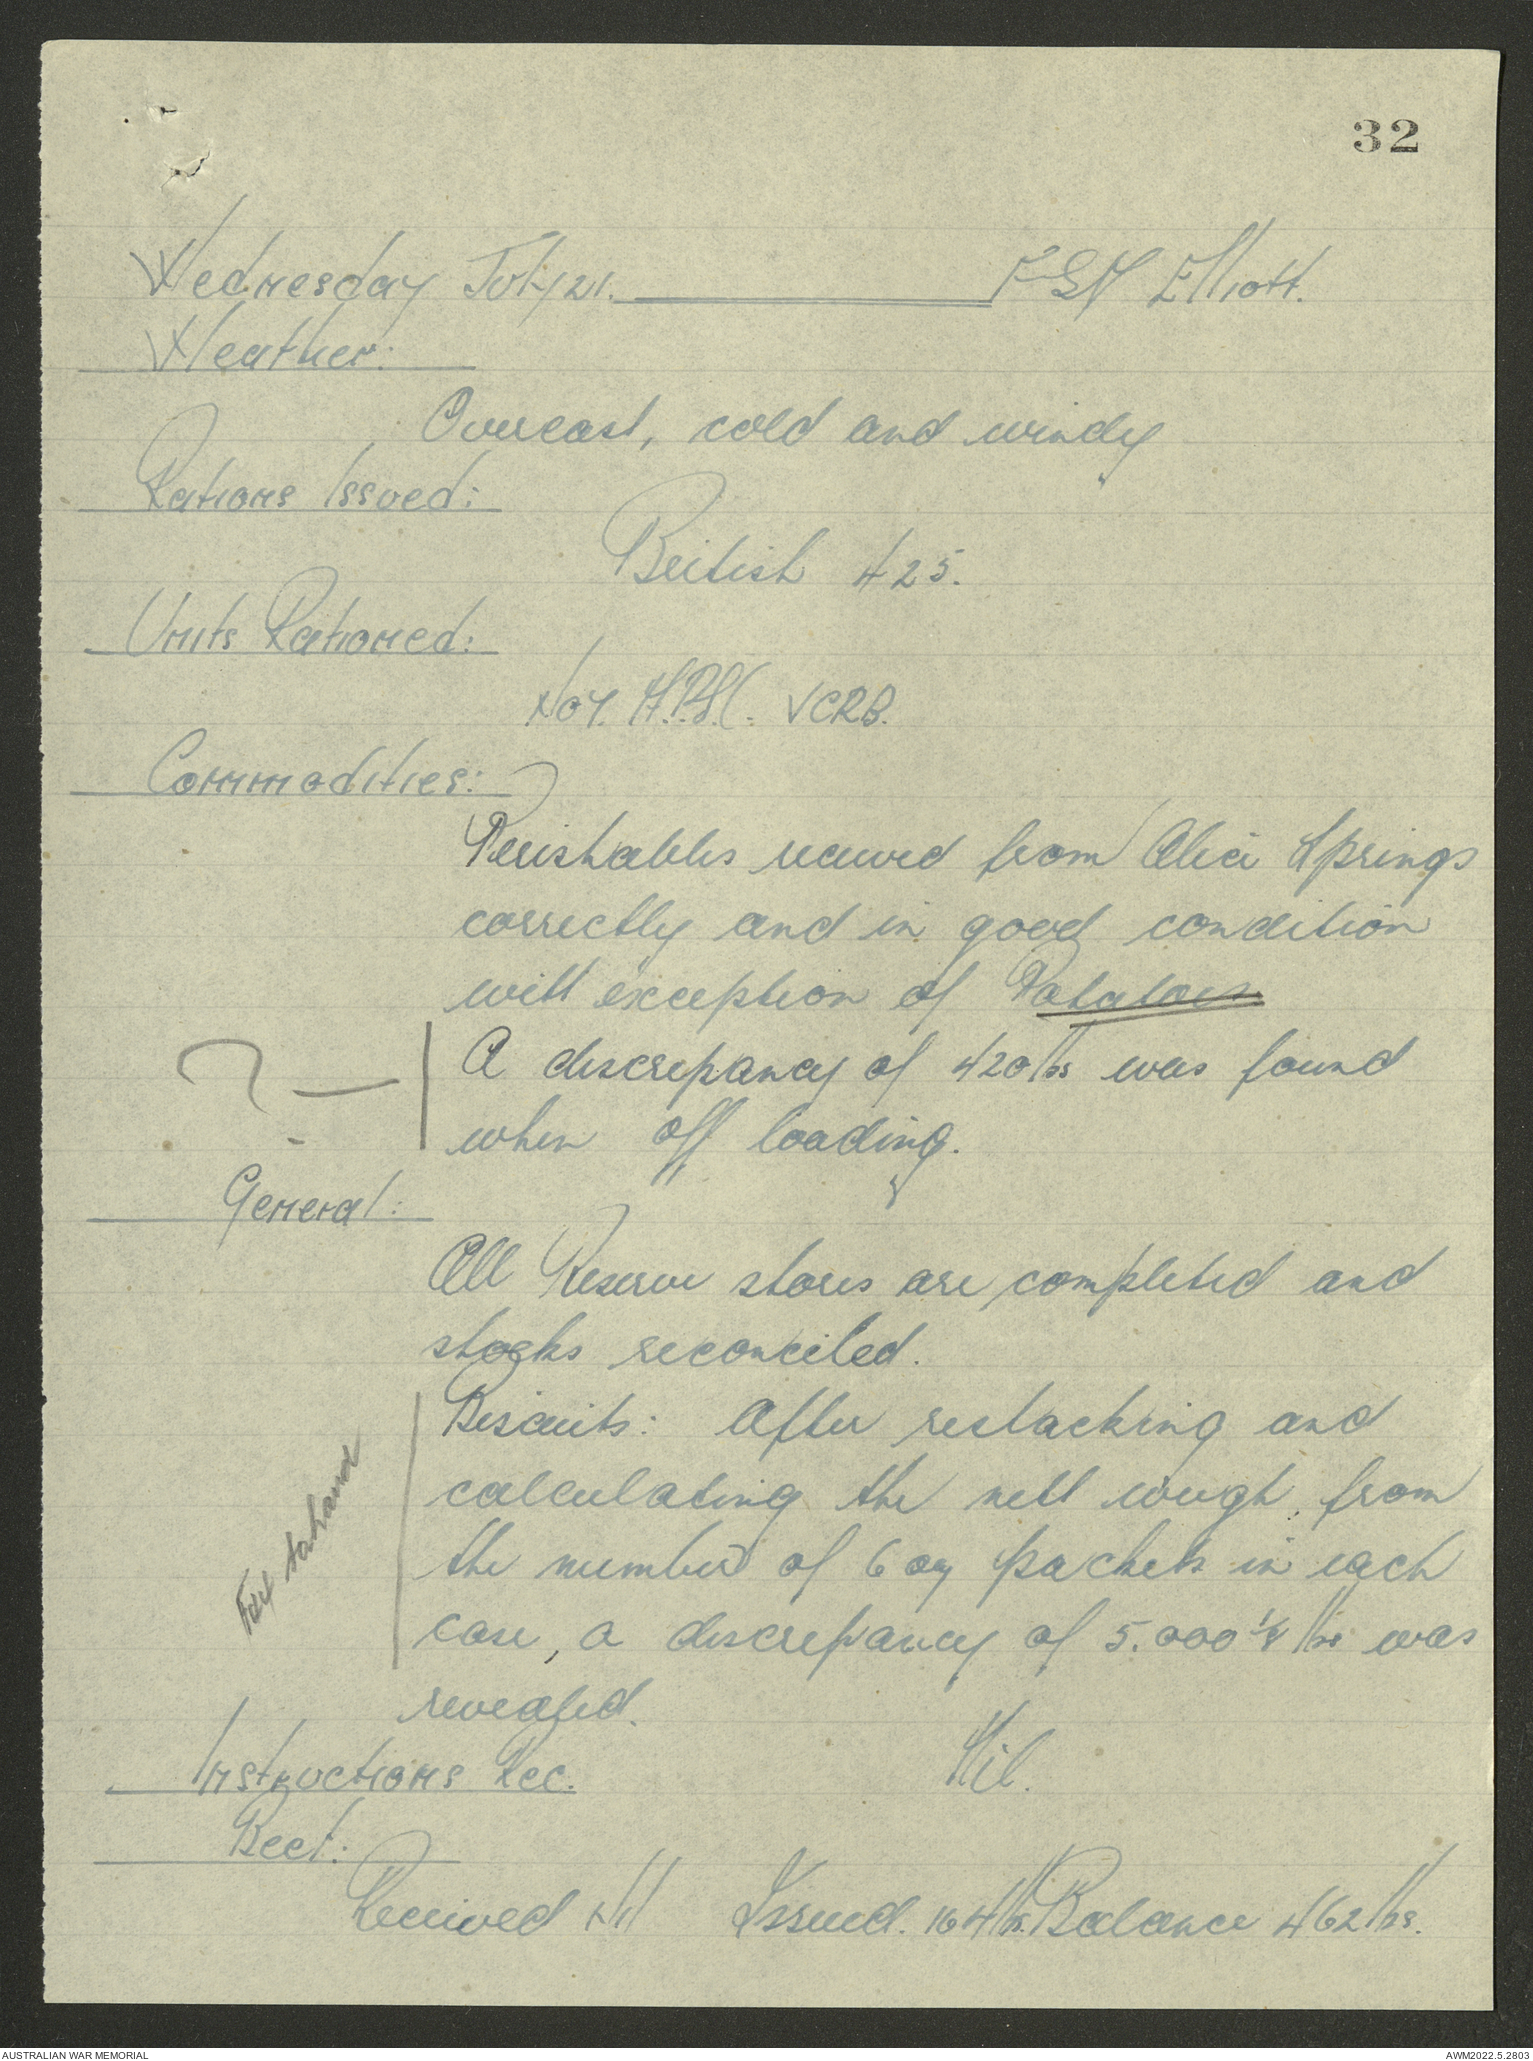 32
Wednesday July 21. Elliott.
Weather:
Overcast, cold and windy
Rations Issued:
British 425.
Units Rationed:
VCRB.
Commodities:
Perishables received from Alice Springs
correctly and in good condition
with exception of Potatoes
A discrepancy of 420 lbs was found
? —
when off loading.
General:
All Reserve stores are completed and
stocks reconciled.
Biscuits: After restacking and
calculating the nett weigh, from
the number of 6 oz packets in each
case, a discrepancy of 5.000 lbs was
revealed.
Instructions Rec. Nil.
Beef:
Received Nil Issued. 164 lbs. Balance 462 lbs.
AUSTRALIAN WAR MEMORIAL
AWM2022.5.2803